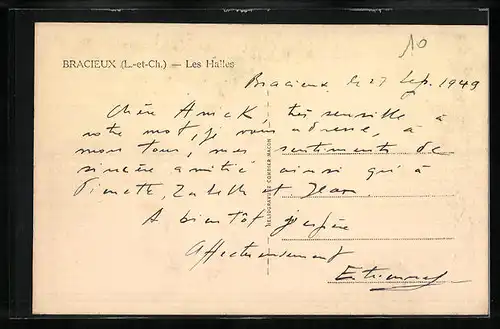 10
BRACIEUX (L.-et-Ch.) — Les Halles
Bracieux le 27 Sep. 1949
Chère Anick, très sensible à
votre mot, je vous adresse, à
mon tour, mes sentiments de
sincère amitié ainsi qu'à
et Jean.
A bientôt j'espère
Affectueusement
HELIOGRAVURE COMBIER MACON